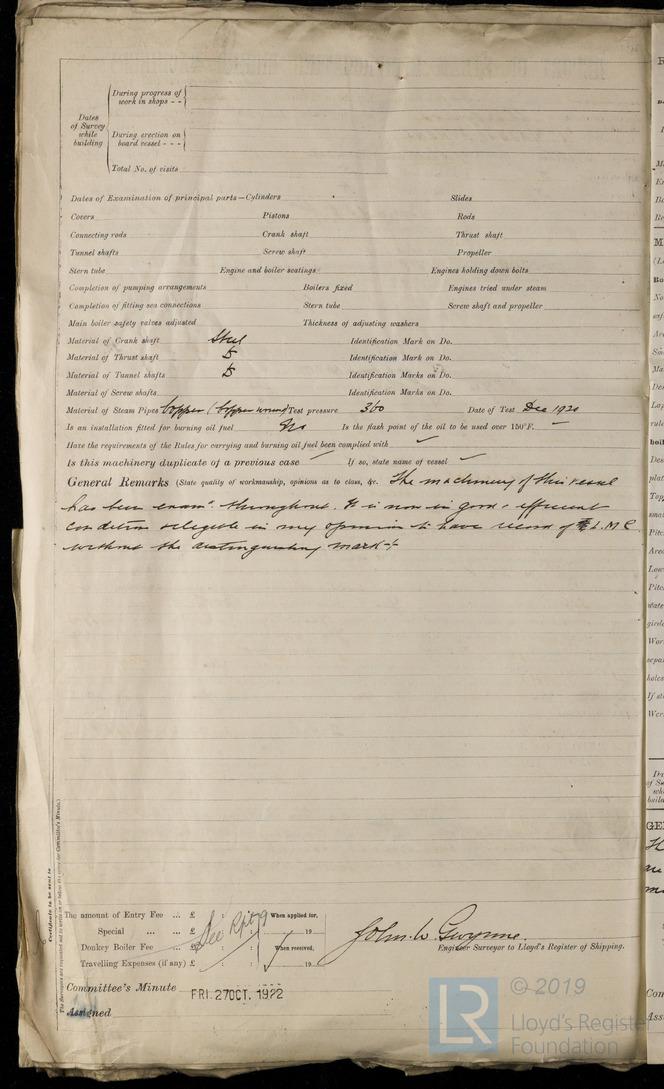 During progress of
work in shops - -
Dates
of Survey
while
building
During erection on
board vessel - - -
Total No. of visits
Dates of Examination of principal parts—Cylinders Slides
Covers Pistons Rods
Connecting rods Crank shaft Thrust shaft
Tunnel shafts Screw shaft Propeller
Stern tube Engine and boiler seatings Engines holding down bolts
Completion of pumping arrangements Boilers fixed Engines tried under steam
Completion of fitting sea connections Stern tube Screw shaft and propeller
Main boiler safety valves adjusted Thickness of adjusting washers
Material of Crank shaft Steel Identification Mark on Do.
Material of Thrust shaft Do Identification Mark on Do.
Material of Tunnel shafts Do Identification Marks on Do.
Material of Screw shafts Identification Marks on Do.
Material of Steam Pipes Copper (Copper wound) Test pressure 360 Date of Test Dec 1920
Is an installation fitted for burning oil fuel No Is the flash point of the oil to be used over 150°F. –
Have the requirements of the Rules for carrying and burning oil fuel been complied with ✓
Is this machinery duplicate of a previous case ✓ If so, state name of vessel ✓
General Remarks (State quality of workmanship, opinions as to class, &c. The machinery of this vessel
has been examd throughout. It is now in good & efficient
condition & eligible in my opinion to have record of L.M.C.
without the distinguishing mark +
Certificate to be sent to
The Surveyors are requested not to write on or below the space for Committee's Minute.
The amount of Entry Fee ... £ : : When applied for,
Special ... ... £ : : 19
See Rpt 9
Donkey Boiler Fee ... £ : : When received,
Travelling Expenses (if any) £ : : 19
John W Gwynne
Engineer Surveyor to Lloyd's Register of Shipping.
Committee's Minute FRI. 27 OCT. 1922
Assigned
LR © 2019
Lloyd's Register
Foundation